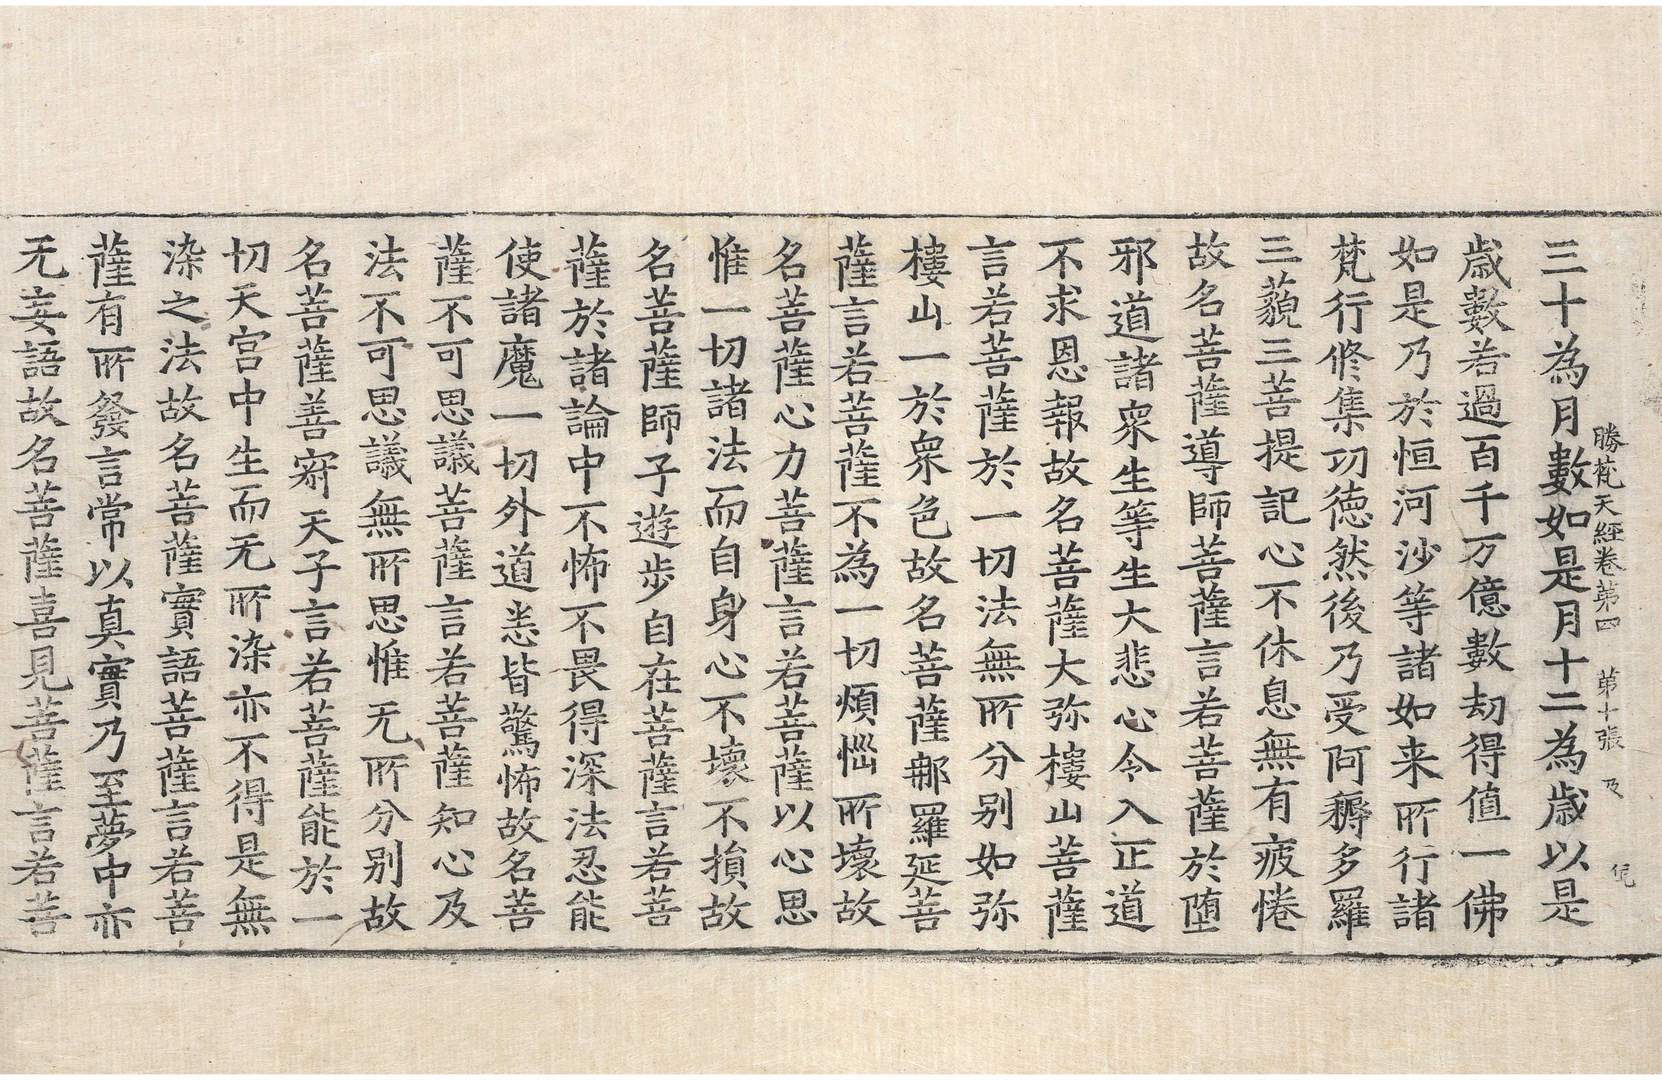 勝梵天經卷第四　第十張　及
三十為月數如是月十二為歲以是
歲數若過百千万億數劫得值一佛
如是乃於恒河沙等諸如来所行諸
梵行修集功德然後乃受阿耨多羅
三藐三菩提記心不休息無有疲惓
故名菩薩導師菩薩言若菩薩於墮
邪道諸衆生等生大悲心令入正道
不求恩報故名菩薩大弥樓山菩薩
言若菩薩於一切法無所分别如弥
樓山一於衆色故名菩薩那羅延菩
薩言若菩薩不為一切煩惱所壞故
名菩薩心力菩薩言若菩薩以心思
惟一切諸法而自身心不壞不損故
名菩薩師子遊步自在菩薩言若菩
薩於諸論中不怖不畏得深法忍能
使諸魔一切外道悉皆驚怖故名菩
薩不可思議菩薩言若菩薩知心及
法不可思議無所思惟无所分别故
名菩薩善寂天子言若菩薩能於一
切天宫中生而无所染亦不得是無
染之法故名菩薩實語菩薩言若菩
薩有所發言常以真實乃至夢中亦
无妄語故名菩薩喜見菩薩言若菩